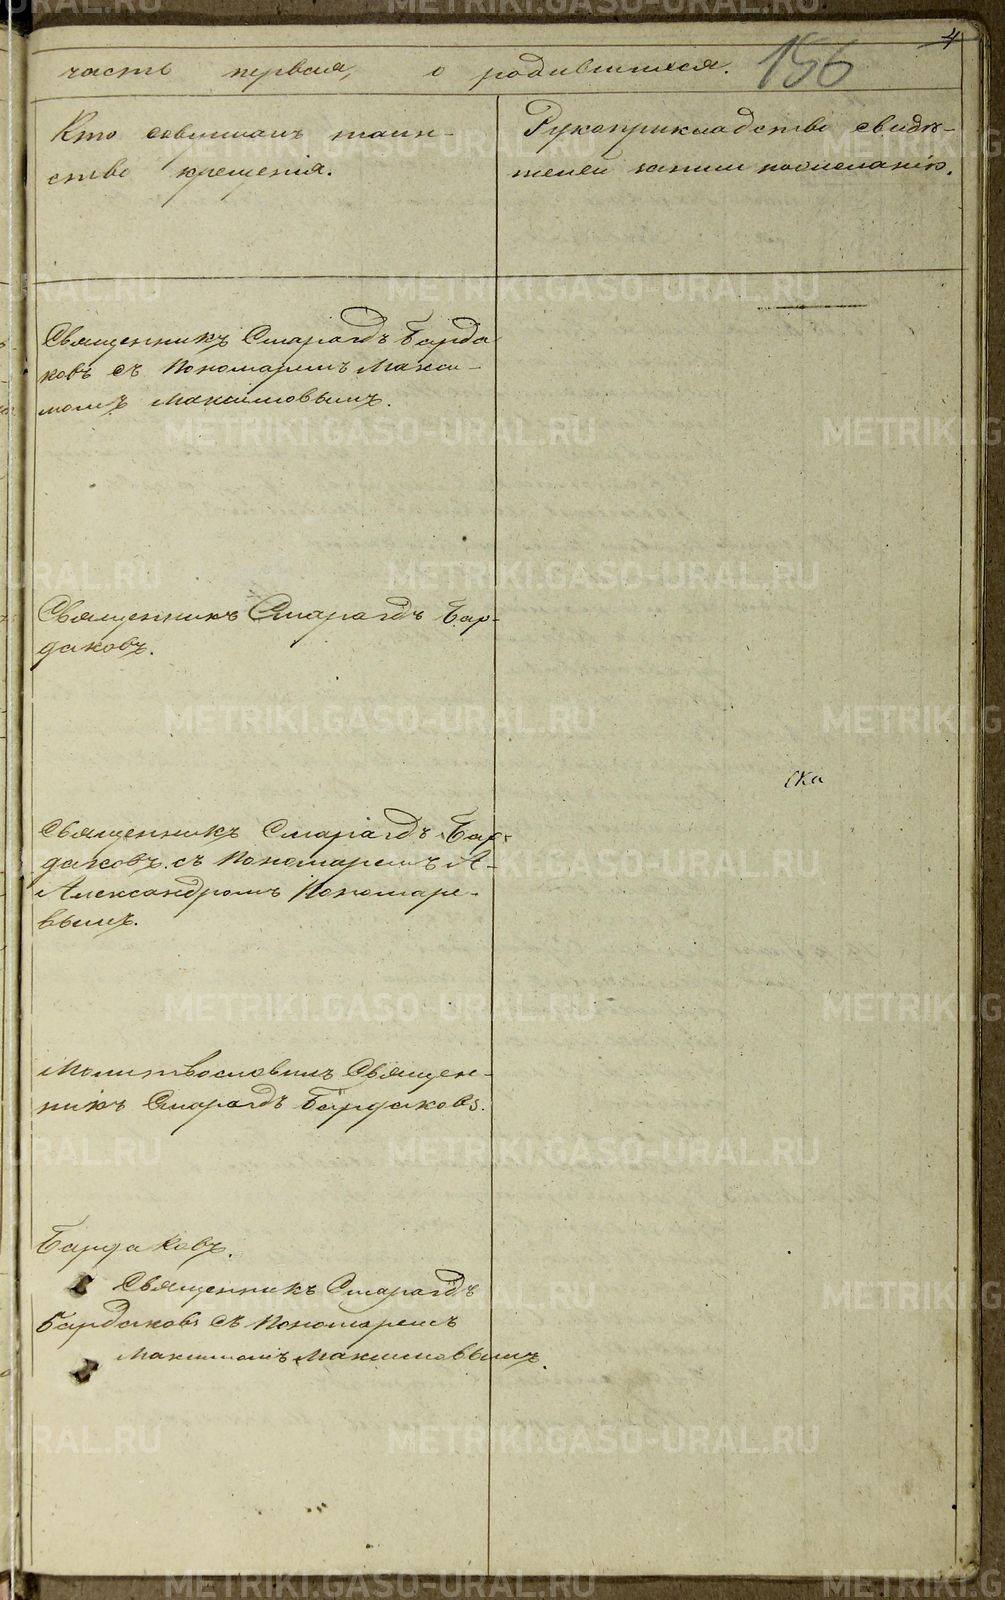 4
часть первая, о родившихся. 156
Кто совершалъ таин-
ство крещенія.
Рукоприкладство свидѣ-
телей записи по желанію.
Священникъ Смарагдъ Барда
ковъ съ Пономаремъ Макси-
момъ Максимовымъ.
Священникъ Смарагдъ Бар-
даковъ.
ска
Священникъ Смарагдъ Бар-
даковъ съ Пономаремъ А-
Александромъ Пономаре-
вымъ.
Молитвословилъ Священ-
никъ Смарагдъ Бардаковъ.
Бардаковъ.
Священникъ Смарагдъ
Бардаковъ съ Пономаремъ
Максимомъ Максимовымъ.
METRIKI.GASO-URAL.RU